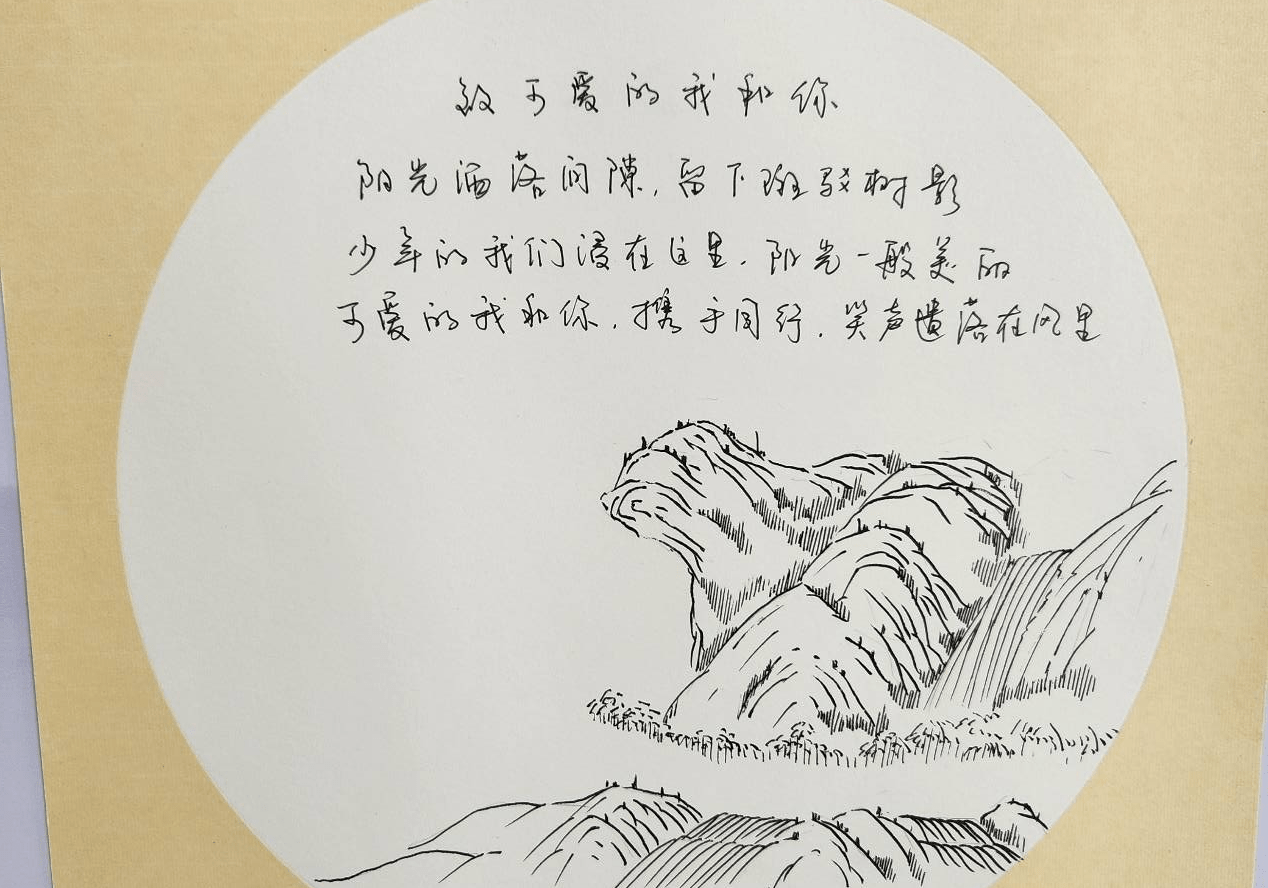 致可爱的我和你
阳光洒落间隙，留下斑驳树影
少年的我们漫在这里，阳光一般美丽
可爱的我和你，携手同行，笑声遗落在风里